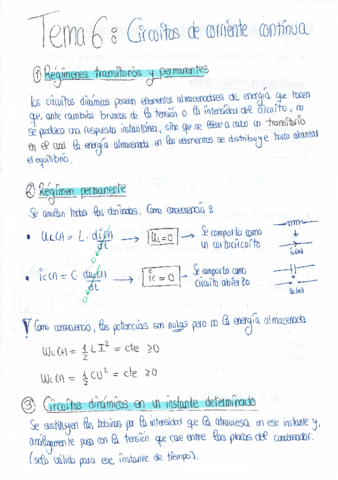 Tema 6: Circuitos de corriente continua
① Regímenes transitorios y permanentes
Los circuitos dinámicos poseen elementos almacenadores de energía que hacen
que, ante cambios bruscos de la tensión o la intensidad del circuito, no
se produzca una respuesta instantánea, sino que se lleve a cabo un transitorio
en el cual la energía almacenada en los elementos se distribuye hasta alcanzar
el equilibrio.
② Régimen permanente
Se anulan todas las derivadas. Como consecuencia:
• u_L(t) = L · di_L(t)/dt → u_L = 0 → Se comporta como un cortocircuito
0
• i_C(t) = C du_C(t)/dt → i_C = 0 → Se comporta como circuito abierto
0
Y como consecuencia, las potencias son nulas pero no la energía almacenada
W_L(t) = 1/2 L I² = cte ≥ 0
W_C(t) = 1/2 C U² = cte ≥ 0
③ Circuitos dinámicos en un instante determinado
Se sustituyen las bobinas por la intensidad que la atraviesa en ese instante y,
análogamente pasa con la tensión que cae entre las placas del condensador.
(solo válido para ese instante de tiempo).